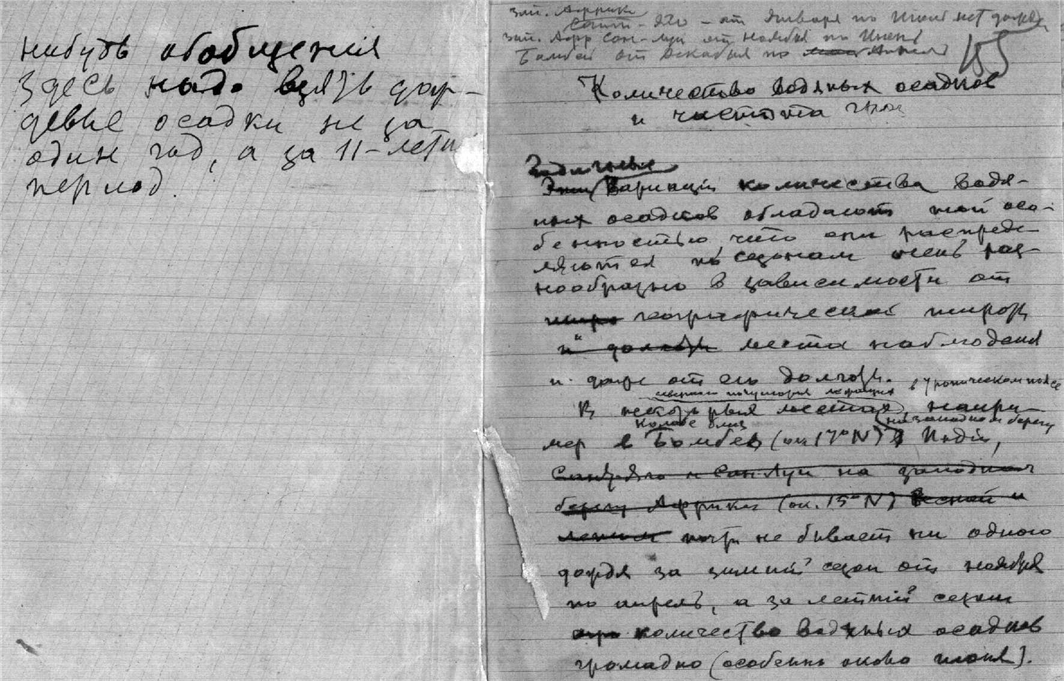 нибудь обобщения
здесь надо взять дож-
девые осадки не за
один год, а за 11-летн
период.
зап. Африки
от января по Июнь нет дождя
зап. Афр Сан-Луи от ноября по Июнь
Бомбей от декабря по Апрель
185
Количество водяных осадков
и чистота
Годичные
Вариации количества водя-
ных осадков обладают той осо-
бенностью, что они распреде-
ляются по сезонам очень раз-
нообразно в зависимости от
географической широты
места наблюдения
и даже от его долготы.
в тропическом поясе
В некоторых местах, напри-
на западном берегу
мер в Бомбее (ок. 17° N) Индии,
Сан-Луи на западном
берегу Африки (ок. 15° N) весной и
летом почти не бывает ни одного
дождя за зимний сезон от ноября
по апрель, а за летний сезон
количество водяных осадков
громадно (особенно около июня).